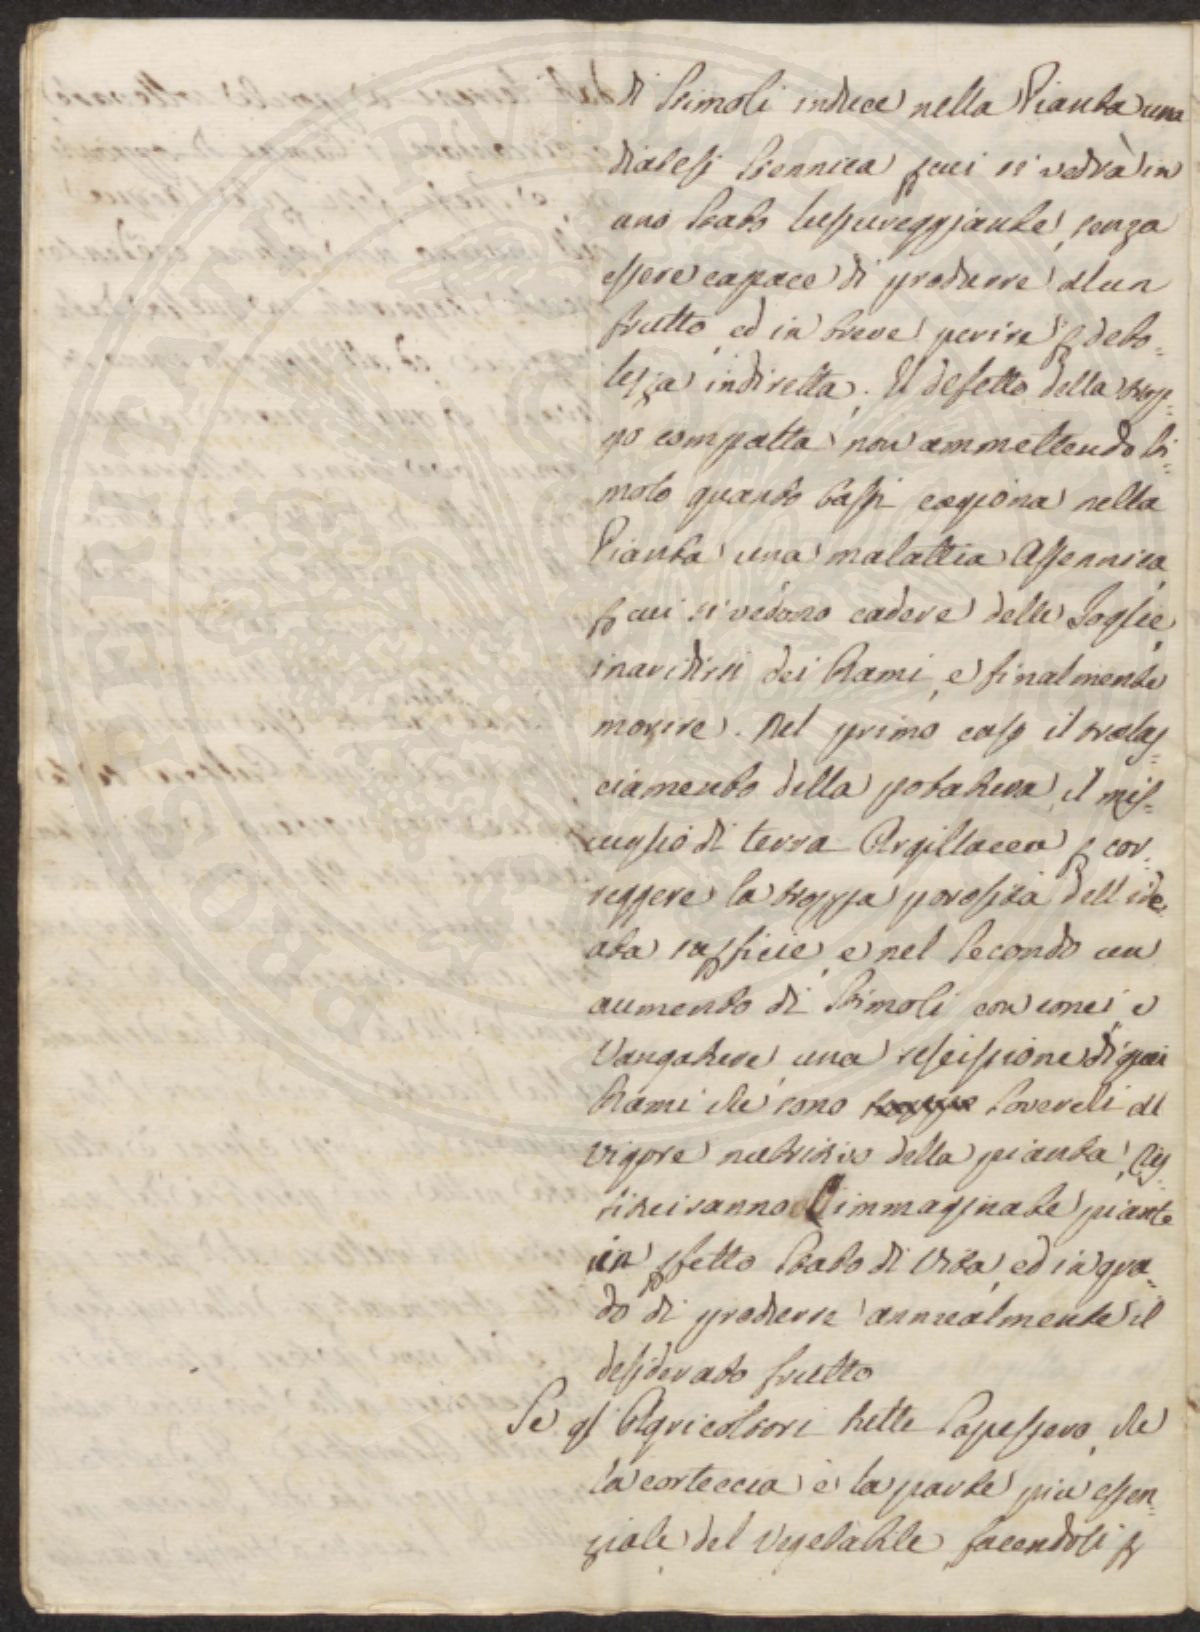 di Stimoli induce nella Pianta una
diatesi Stennica p cui si vedrà in
uno Stato lussureggiante, senza
essere capace di produrre alcun
frutto, ed in breve perire p debo=
lezza indiretta. Il difetto della trop=
po compatta non ammettendo Sti=
molo quanto basti cagiona nella
Pianta una malattia Astennica,
p cui si vedono cadere delle Foglie,
inaridirsi dei Rami, e finalmente
morire. Nel primo caso il tralas=
ciamento della potatura, il mis=
cuglio di terra Argillacea p cor=
reggere la troppa porosità dell'ide
ata supficie, e nel Secondo un
aumento di Stimoli con conci e
Vangature, una rescissione di quei
Rami che sono Soverchi al
vigore nutritivo della pianta, Cos=
tituiranno l'immaginate piante
in pfetto Stato di Vita, ed in gra=
do di produrre annualmente il
desiderato frutto
Se gl'Agricoltori tutti Sapessero, che
la corteccia è la parte più essen=
ziale del Vegetabile, facendosi p